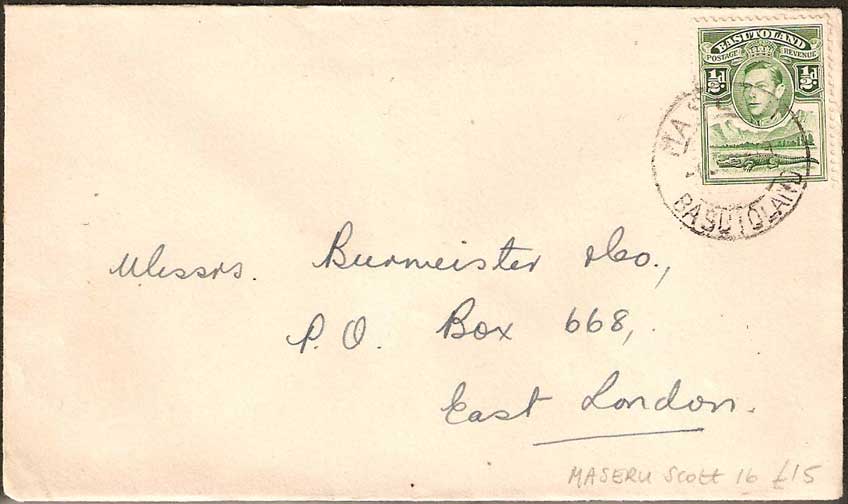 BASUTOLAND
POSTAGE REVENUE
½d ½d
BASUTOLAND
Messrs. Burmeister & Co.,
P.O. Box 668,
East London.
MASERU SCOTT 16 £15